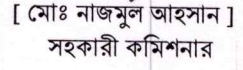 [ মোঃ নাজমুল আহসান ]
সহকারী কমিশনার